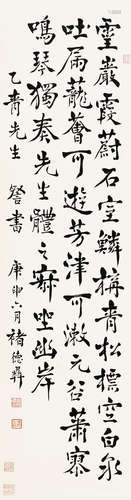 靈巖霞蔚石室鱗構青松標空白泉
吐漏蘿薈可遊芳津可漱元谷蕭寥
鳴琴獨奏先生體之寂坐幽岸
乙青先生 詧書 庚申六月 褚德彝